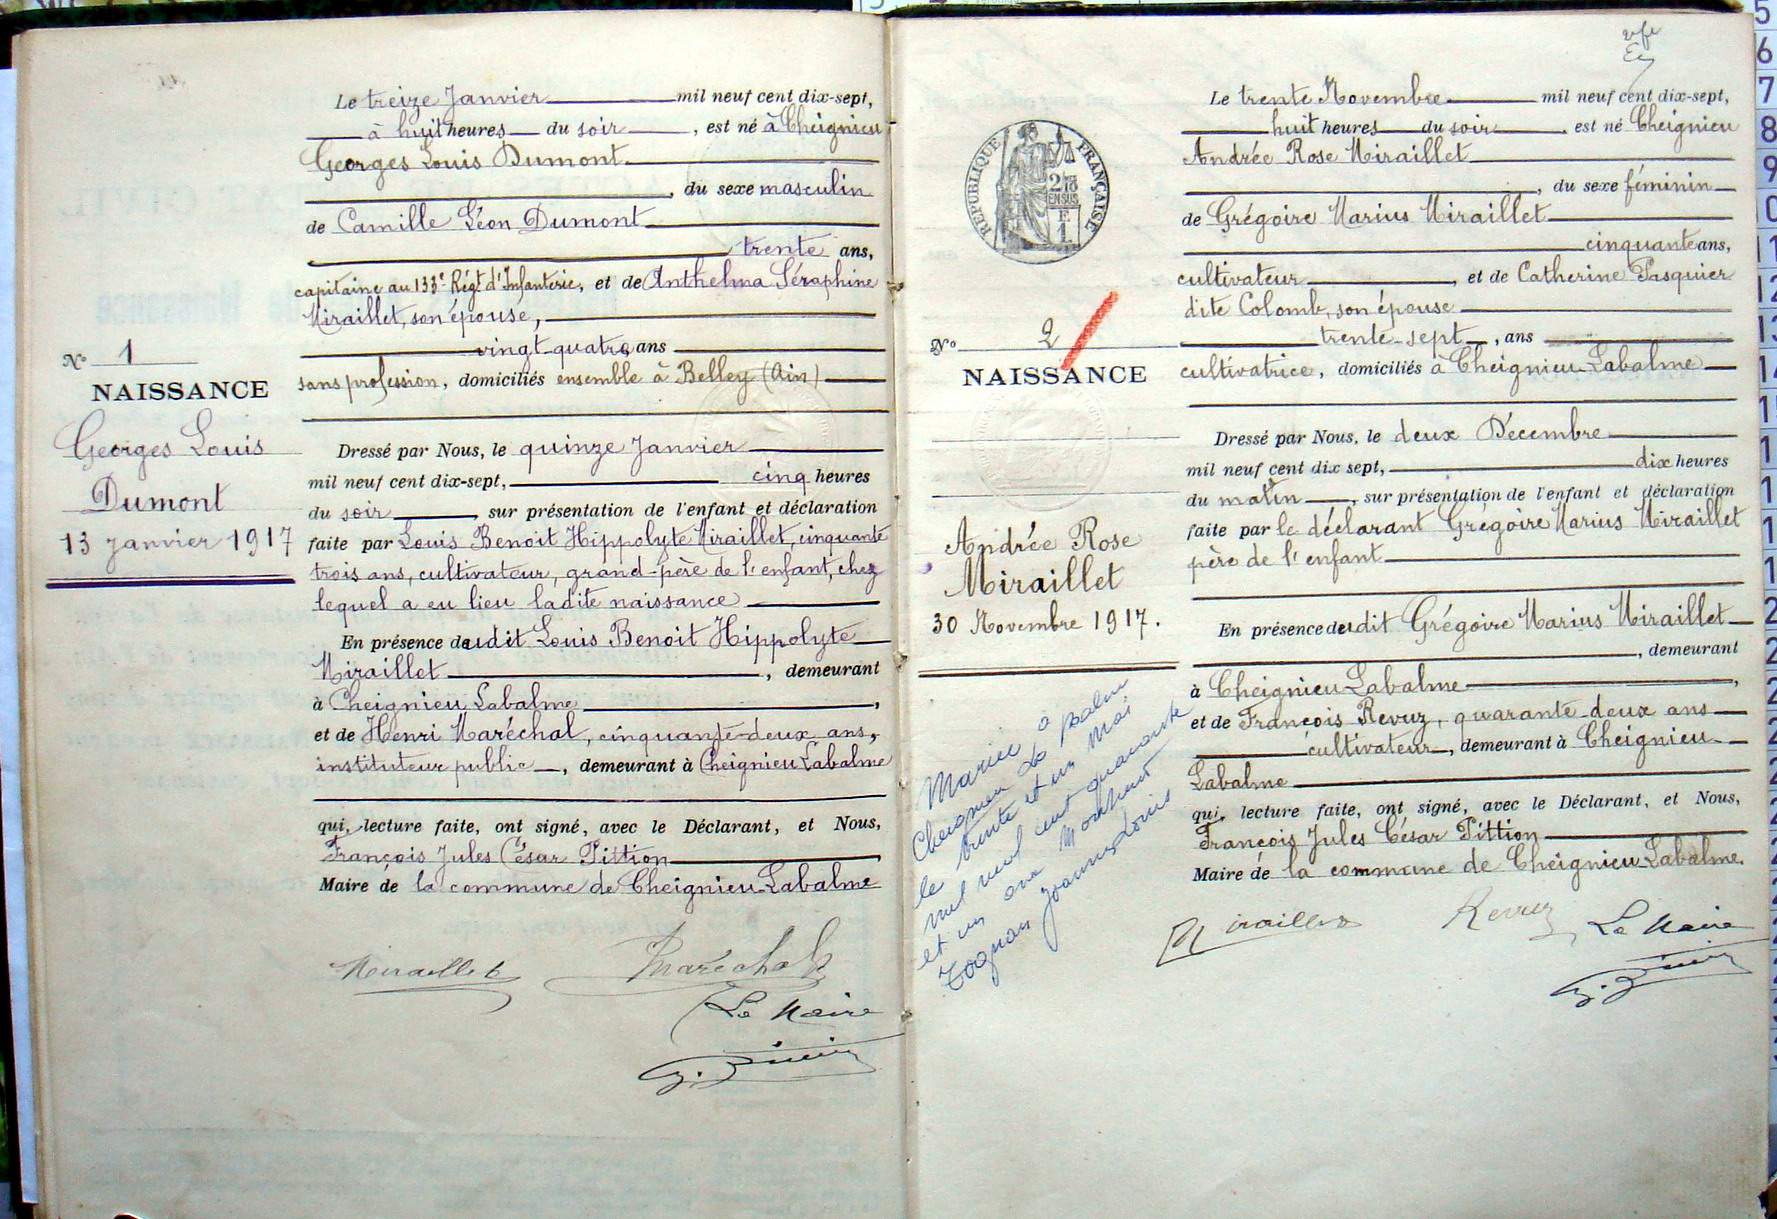 Le treize Janvier mil neuf cent dix-sept,
à huit heures du soir, est né à Cheignieu
Georges Louis Dumont
, du sexe masculin
de Camille Léon Dumont
trente ans,
capitaine au 133e Régt d'Infanterie, et de Anthelma Séraphine
Miraillet, son épouse,
vingt-quatre ans
sans profession, domiciliés ensemble à Belley (Ain)
N° 1
NAISSANCE
Georges Louis
Dumont
13 Janvier 1917
Dressé par Nous, le quinze Janvier
mil neuf cent dix-sept, cinq heures
du soir, sur présentation de l'enfant et déclaration
faite par Louis Benoit Hippolyte Miraillet, cinquante
trois ans, cultivateur, grand-père de l'enfant, chez
lequel a eu lieu ladite naissance
En présence dudit Louis Benoit Hippolyte
Miraillet, demeurant
à Cheignieu Labalme,
et de Henri Maréchal, cinquante-deux ans,
instituteur public, demeurant à Cheignieu Labalme
qui, lecture faite, ont signé, avec le Déclarant, et Nous,
François Jules César Pittion
Maire de la commune de Cheignieu-Labalme
Miraillet Maréchal
Le Maire
Le trente Novembre mil neuf cent dix-sept,
huit heures du soir, est né Cheignieu
Andrée Rose Miraillet
, du sexe féminin
de Grégoire Marius Miraillet
cinquante ans,
cultivateur, et de Catherine Pasquier
dite Colomb, son épouse
trente-sept, ans
cultivatrice, domiciliés à Cheignieu-Labalme
RÉPUBLIQUE FRANÇAISE
2/10
EN SUS
F
1
N° 2
NAISSANCE
Andrée Rose
Miraillet
30 Novembre 1917.
Dressé par Nous, le deux Décembre
mil neuf cent dix sept, dix heures
du matin, sur présentation de l'enfant et déclaration
faite par le déclarant Grégoire Marius Miraillet
père de l'enfant
En présence dudit Grégoire Marius Miraillet
, demeurant
à Cheignieu Labalme,
et de François Revuz, quarante deux ans
cultivateur, demeurant à Cheignieu
Labalme
qui, lecture faite, ont signé, avec le Déclarant, et Nous,
François Jules César Pittion
Maire de la commune de Cheignieu-Labalme.
Mariée à
Cheignieu La balme
le trente et un Mai
mil neuf cent quarante
et un avec
Joannes Louis
Miraillet Revuz Le Maire